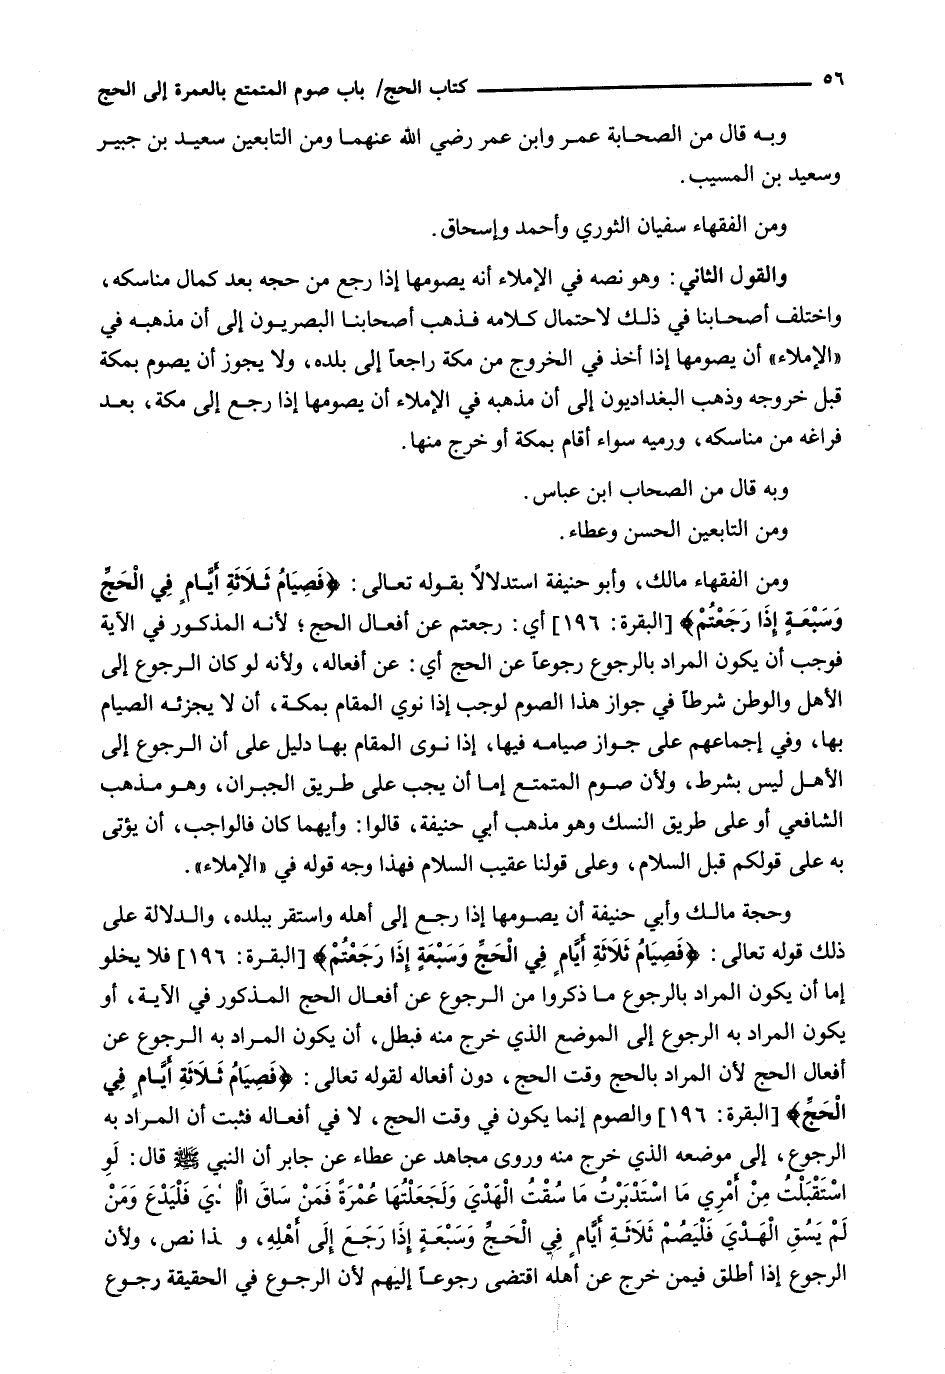 ٥٦ كتاب الحج/ باب صوم المتمتع بالعمرة إلى الحج
وبه قال من الصحابة عمر وابن عمر رضي الله عنهما ومن التابعين سعيد بن جبير
وسعيد بن المسيب.
ومن الفقهاء سفيان الثوري وأحمد وإسحاق.
والقول الثاني: وهو نصه في الإملاء أنه يصومها إذا رجع من حجه بعد كمال مناسكه،
واختلف أصحابنا في ذلك لاحتمال كلامه فذهب أصحابنا البصريون إلى أن مذهبه في
«الإملاء» أن يصومها إذا أخذ في الخروج من مكة راجعاً إلى بلده، ولا يجوز أن يصوم بمكة
قبل خروجه وذهب البغداديون إلى أن مذهبه في الإملاء أن يصومها إذا رجع إلى مكة، بعد
فراغه من مناسكه، ورميه سواء أقام بمكة أو خرج منها.
وبه قال من الصحاب ابن عباس.
ومن التابعين الحسن وعطاء.
ومن الفقهاء مالك، وأبو حنيفة استدلالاً بقوله تعالى: ﴿فَصِيَامُ ثَلَاثَةِ أَيَّامٍ فِي الْحَجِّ
وَسَبْعَةٍ إِذَا رَجَعْتُمْ﴾ [البقرة: ١٩٦] أي: رجعتم عن أفعال الحج؛ لأنه المذكور في الآية
فوجب أن يكون المراد بالرجوع رجوعاً عن الحج أي: عن أفعاله، ولأنه لو كان الرجوع إلى
الأهل والوطن شرطاً في جواز هذا الصوم لوجب إذا نوي المقام بمكة، أن لا يجزئه الصيام
بها، وفي إجماعهم على جواز صيامه فيها، إذا نوى المقام بها دليل على أن الرجوع إلى
الأهل ليس بشرط، ولأن صوم المتمتع إما أن يجب على طريق الجبران، وهو مذهب
الشافعي أو على طريق النسك وهو مذهب أبي حنيفة، قالوا: وأيهما كان فالواجب، أن يؤتى
به على قولكم قبل السلام، وعلى قولنا عقيب السلام فهذا وجه قوله في «الإملاء».
وحجة مالك وأبي حنيفة أن يصومها إذا رجع إلى أهله واستقر ببلده، والدلالة على
ذلك قوله تعالى: ﴿فَصِيَامُ ثَلَاثَةِ أَيَّامٍ فِي الْحَجِّ وَسَبْعَةٍ إِذَا رَجَعْتُمْ﴾ [البقرة: ١٩٦] فلا يخلو
إما أن يكون المراد بالرجوع ما ذكروا من الرجوع عن أفعال الحج المذكور في الآية، أو
يكون المراد به الرجوع إلى الموضع الذي خرج منه فبطل، أن يكون المراد به الرجوع عن
أفعال الحج لأن المراد بالحج وقت الحج، دون أفعاله لقوله تعالى: ﴿فَصِيَامُ ثَلَاثَةِ أَيَّامٍ فِي
الْحَجِّ﴾ [البقرة: ١٩٦] والصوم إنما يكون في وقت الحج، لا في أفعاله فثبت أن المراد به
الرجوع، إلى موضعه الذي خرج منه وروى مجاهد عن عطاء عن جابر أن النبي ﷺ قال: لَوِ
اسْتَقْبَلْتُ مِنْ أَمْرِي مَا اسْتَدْبَرْتُ مَا سُقْتُ الْهَدْيَ وَلَجَعَلْتُهَا عُمْرَةً فَمَنْ سَاقَ فَلْيَدَعْ وَمَنْ
لَمْ يَسُقِ الْهَدْيَ فَلْيَصُمْ ثَلَاثَةِ أَيَّامٍ فِي الْحَجِّ وَسَبْعَةٍ إِذَا رَجَعَ إِلَى أَهْلِهِ، نص، ولأن
الرجوع إذا أطلق فيمن خرج عن أهله اقتضى رجوعاً إليهم لأن الرجوع في الحقيقة رجوع